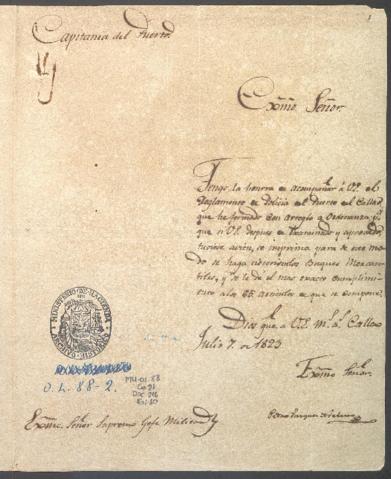 1
Capitania del Puerto.
Exmo. Señor.
Tengo la honra de acompañar á V.E. el
Reglamento de Policia del Puerto del Callao
que he formado con arreglo a Ordenanza, pa.
que si V.E. despues de examinado y aprovado
tuviere á bien, se imprima para de este mo-
do se haga á los Buques Mercan-
tiles, y se le dé el mas exacto cumplimi-
ento a los 65 articulos de que se compone.
Dios gue. á V.E. ms. as. Callao
Julio 7. de 1823
Exmo. Señor.
MINISTERIO DE HACIENDA
O.L. 88-2.
Exmo. Señor Supremo Gefe Militar